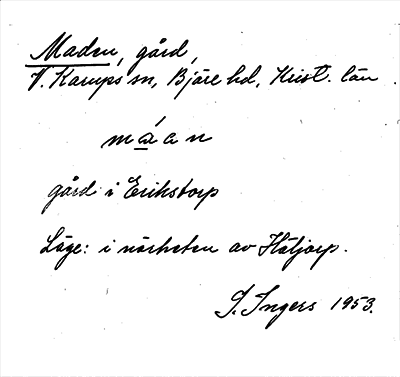 Maden, gård,
V. Karups sn, Bjäre hd, Krist. län
máan
gård i Erikstorp
Läge: i närheten av Håljorp.
I. Ingers 1953.